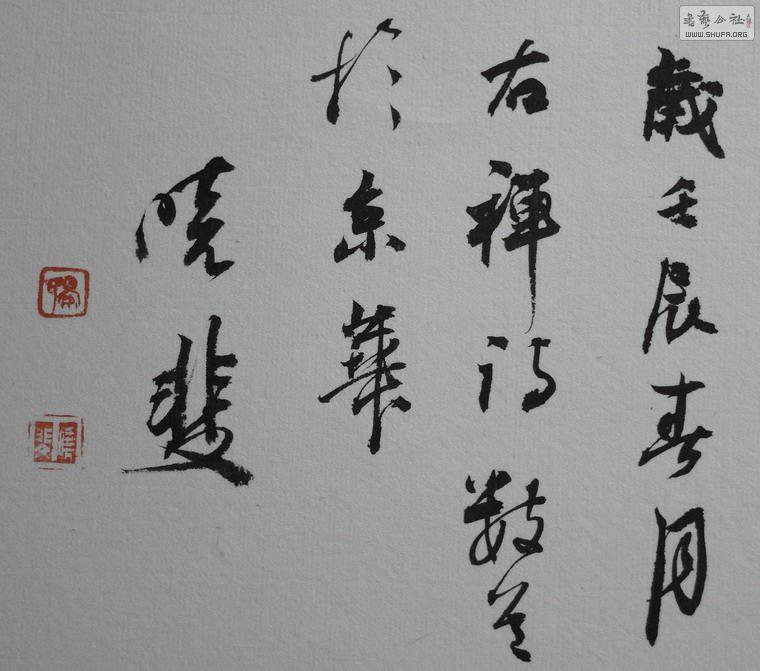 歲壬辰春月
右禪詩數首
於京華
曉斐
書藝公社
WWW.SHUFA.ORG